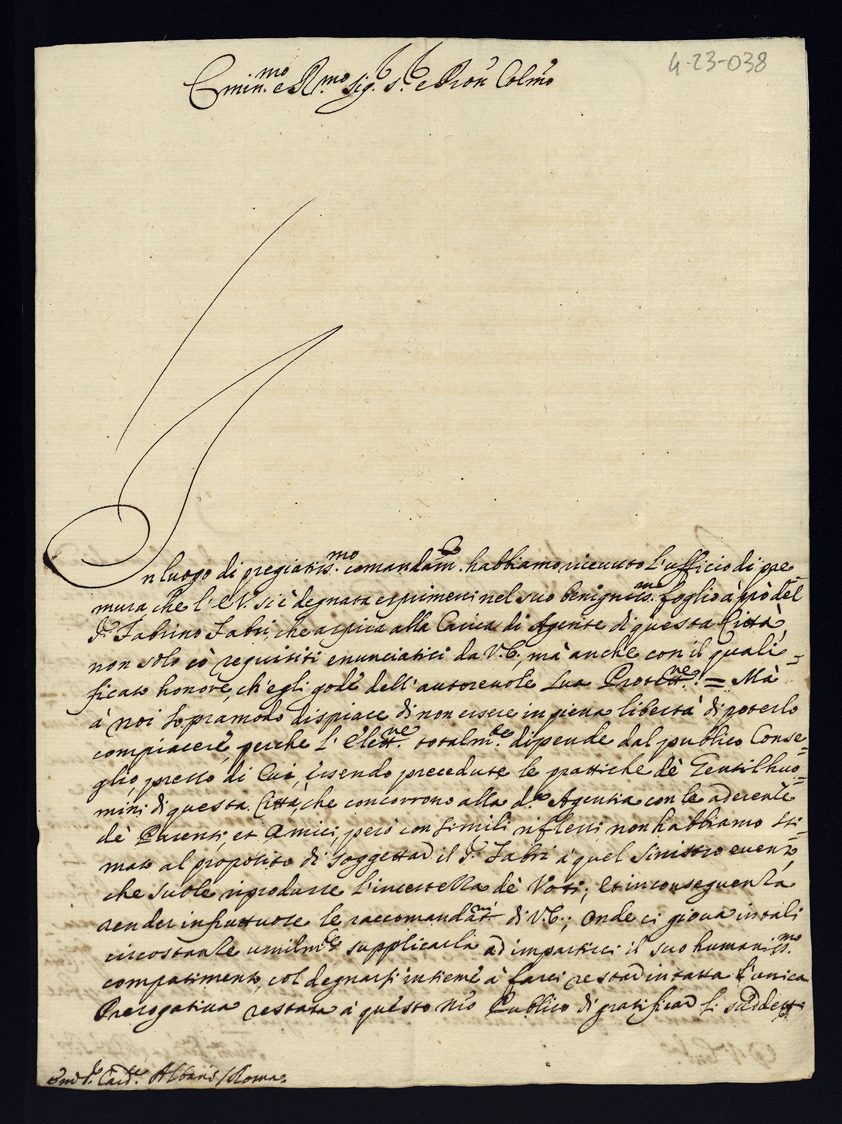 4-23-038
Emin.mo e R.mo Sig.r S.r e Pron Colmo
In luogo di pregiatis.mo comandam.o habbiamo riceuuto l'ufficio di pre-
mura che l'E.V. si è degnata esprimerci nel suo benignis.mo foglio à prò del
S.r Fabrino Fabri che aspira alla Carica di Agente di questa Città,
non solo cò requisiti enunciatici da V.E., mà anche con il quali-
ficato honore, ch'egli gode dell'autoreuole Sua Protett.ne = Mà
à noi sopramodo dispiace di non essere in piena libertà di poterlo
compiacere perche l'Elett.ne totalm.te dipende dal publico Conse-
glio, presso di Cui, essendo precedute le prattiche dè Gentilhuo-
mini di questa Città, che concorrono alla d.a Agentia con le aderenze
dè Parenti, et Amici, però con simili riflessi non habbiamo sti-
mato al proposito di soggettar il S.r Fabri à quel sinistro euento,
che suole riprodurre l'incertezza dè Voti, et in conseguenza
render infruttuose le raccomandat.ni di V.E.; Onde ci gioua in tali
circostanze umilm.te supplicarla ad impartirci il suo humanis.mo
compatimento, col degnarsi insieme à farci restar intatta l'unica
Prerogatiua restata à questo nr̃o Publico di gratificar li suddetti
Em.o S.r Card.le Albani / Roma.